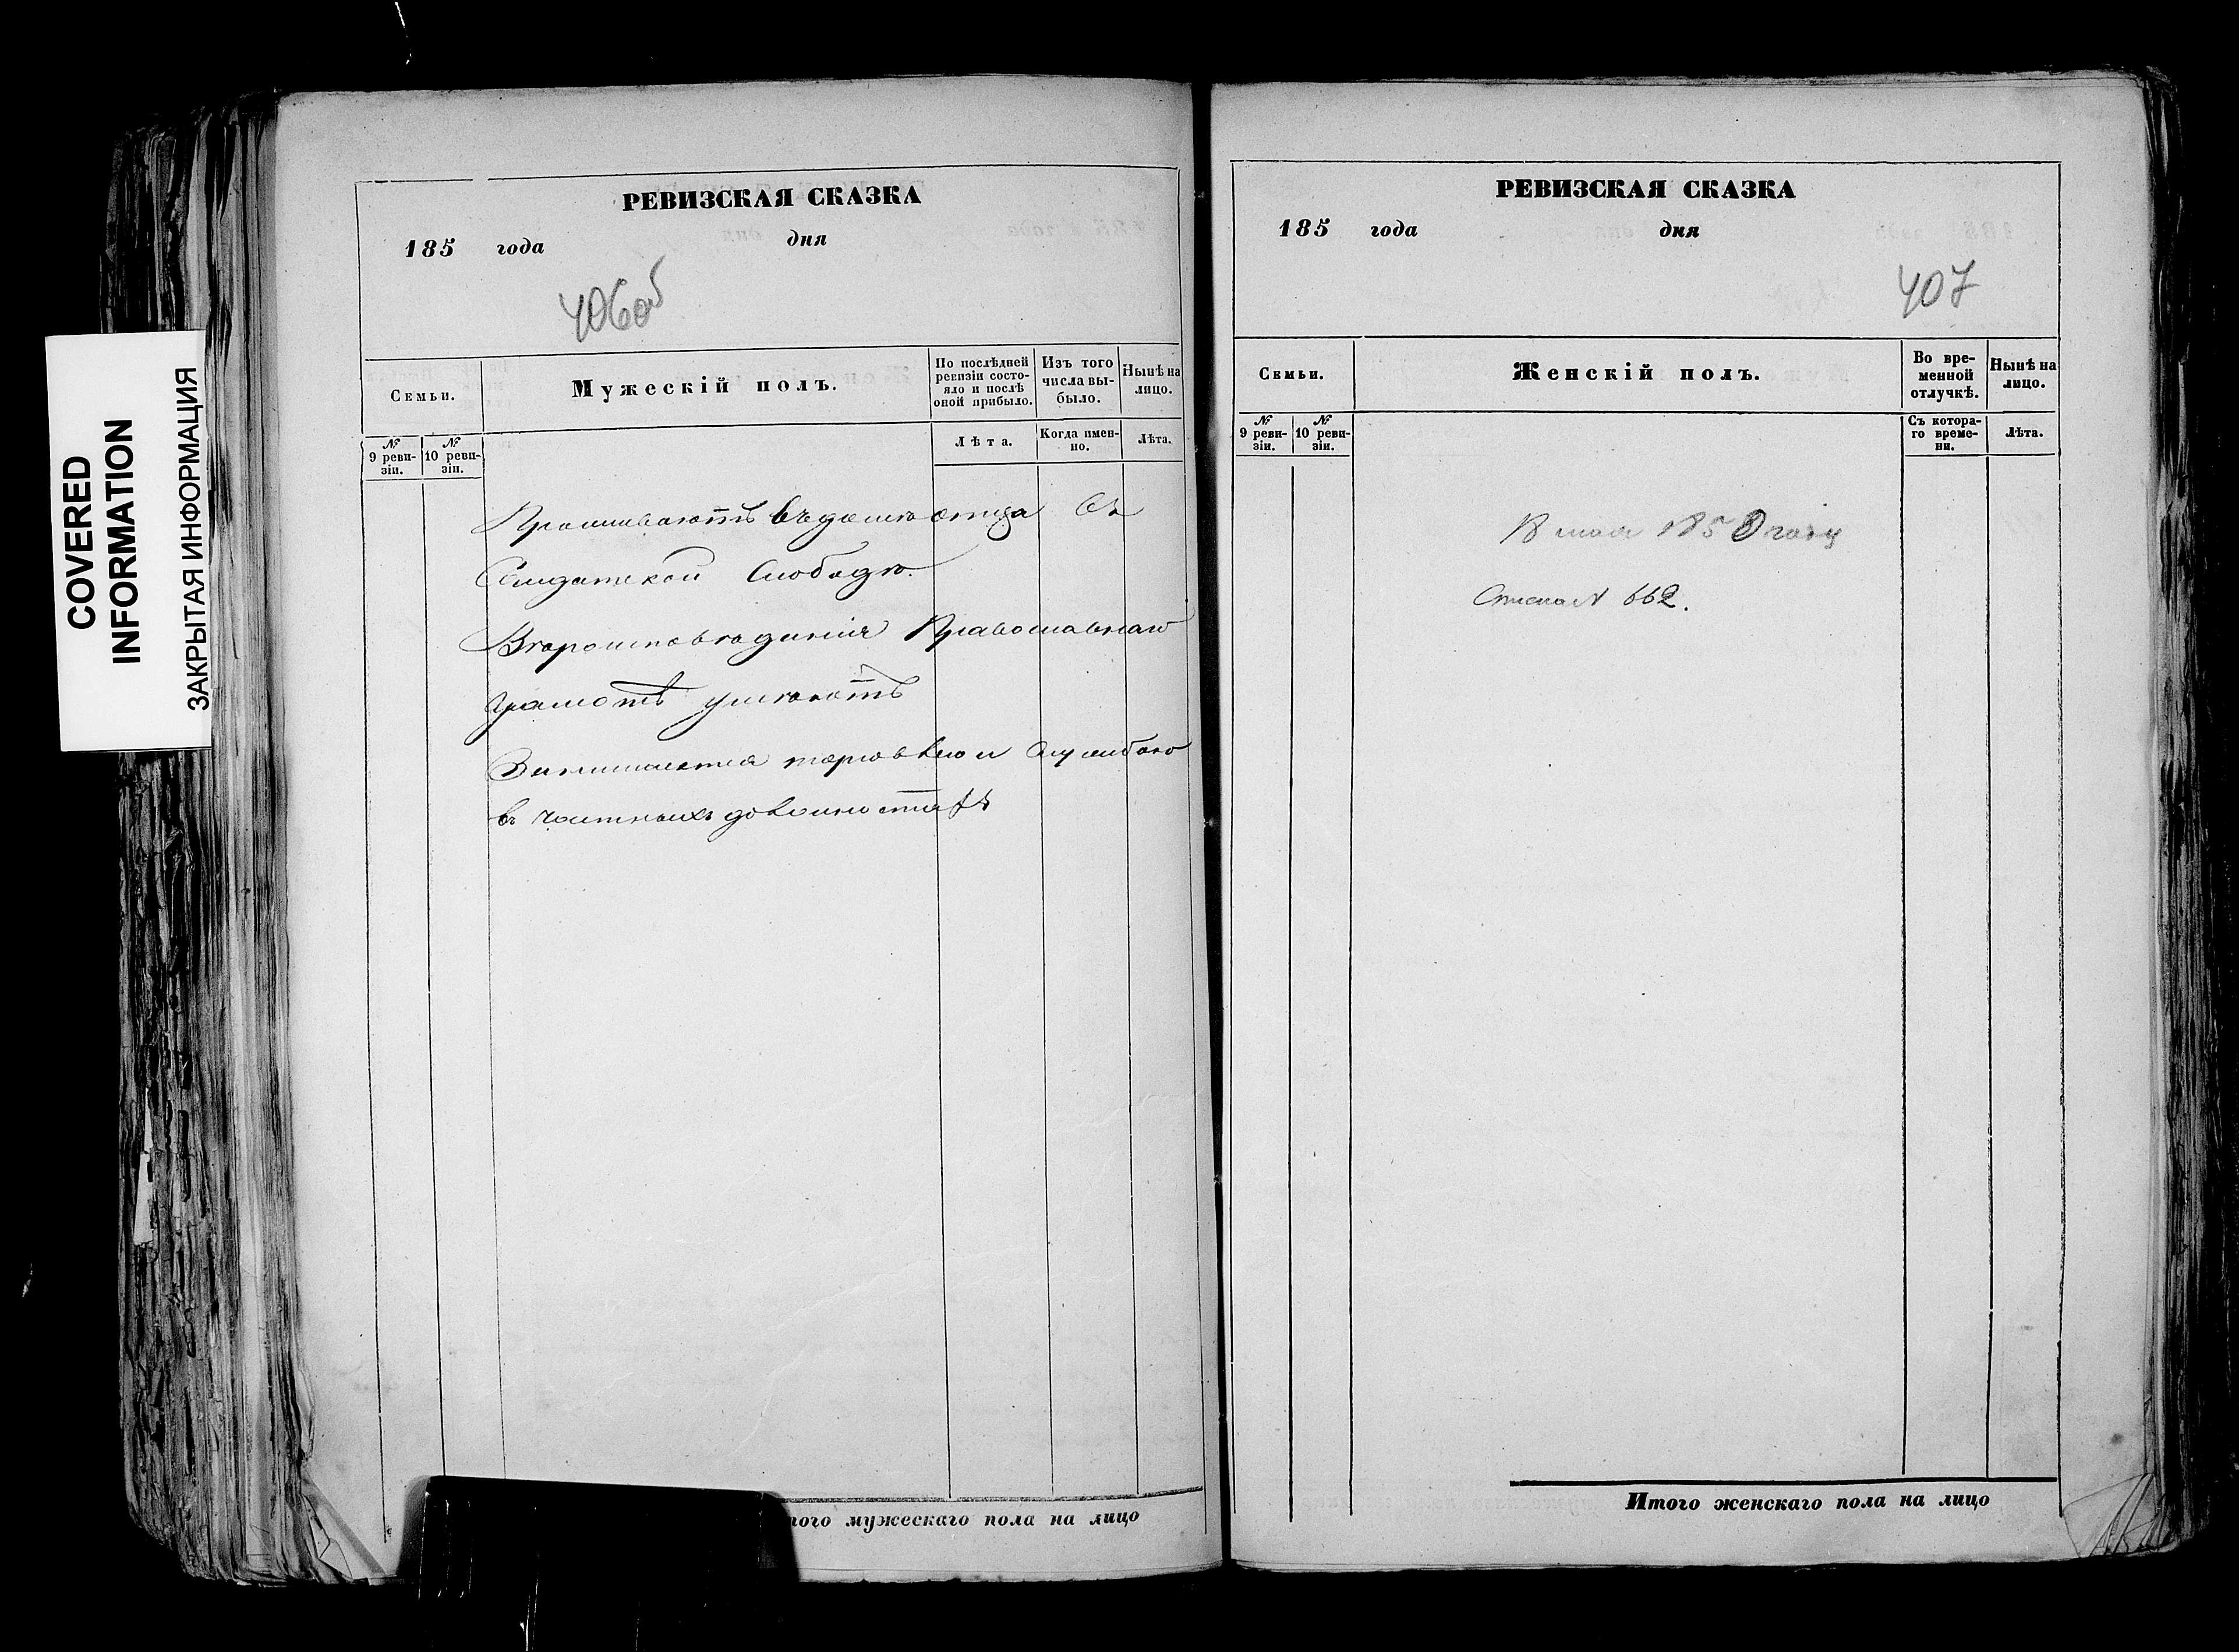 COVERED
INFORMATION
ЗАКРЫТАЯ ИНФОРМАЦИЯ
РЕВИЗСКАЯ СКАЗКА
185 года дня
406об
Семьи.
Мужескій полъ.
По послѣдней ревизіи состояло и послѣ оной прибыло.
Изъ того числа выбыло.
Нынѣ на лицо.
№ 9 ревизіи.
№ 10 ревизіи.
Лѣта.
Когда именно.
Лѣта.
Проживаютъ въ доме отца въ
Солдатской Слободе.
Вероисповеденія Православнаго
грамотѣ умеютъ
Занимается торговлею и службою
въ частныхъ должностяхъ
того мужескаго пола на лицо
РЕВИЗСКАЯ СКАЗКА
185 года дня
407
Семьи.
Женскій полъ.
Во временной отлучкѣ.
Нынѣ на лицо.
№ 9 ревизіи.
№ 10 ревизіи.
Съ котораго времени.
Лѣта.
18 мая 1858 году
№ 662.
Итого женскаго пола на лицо